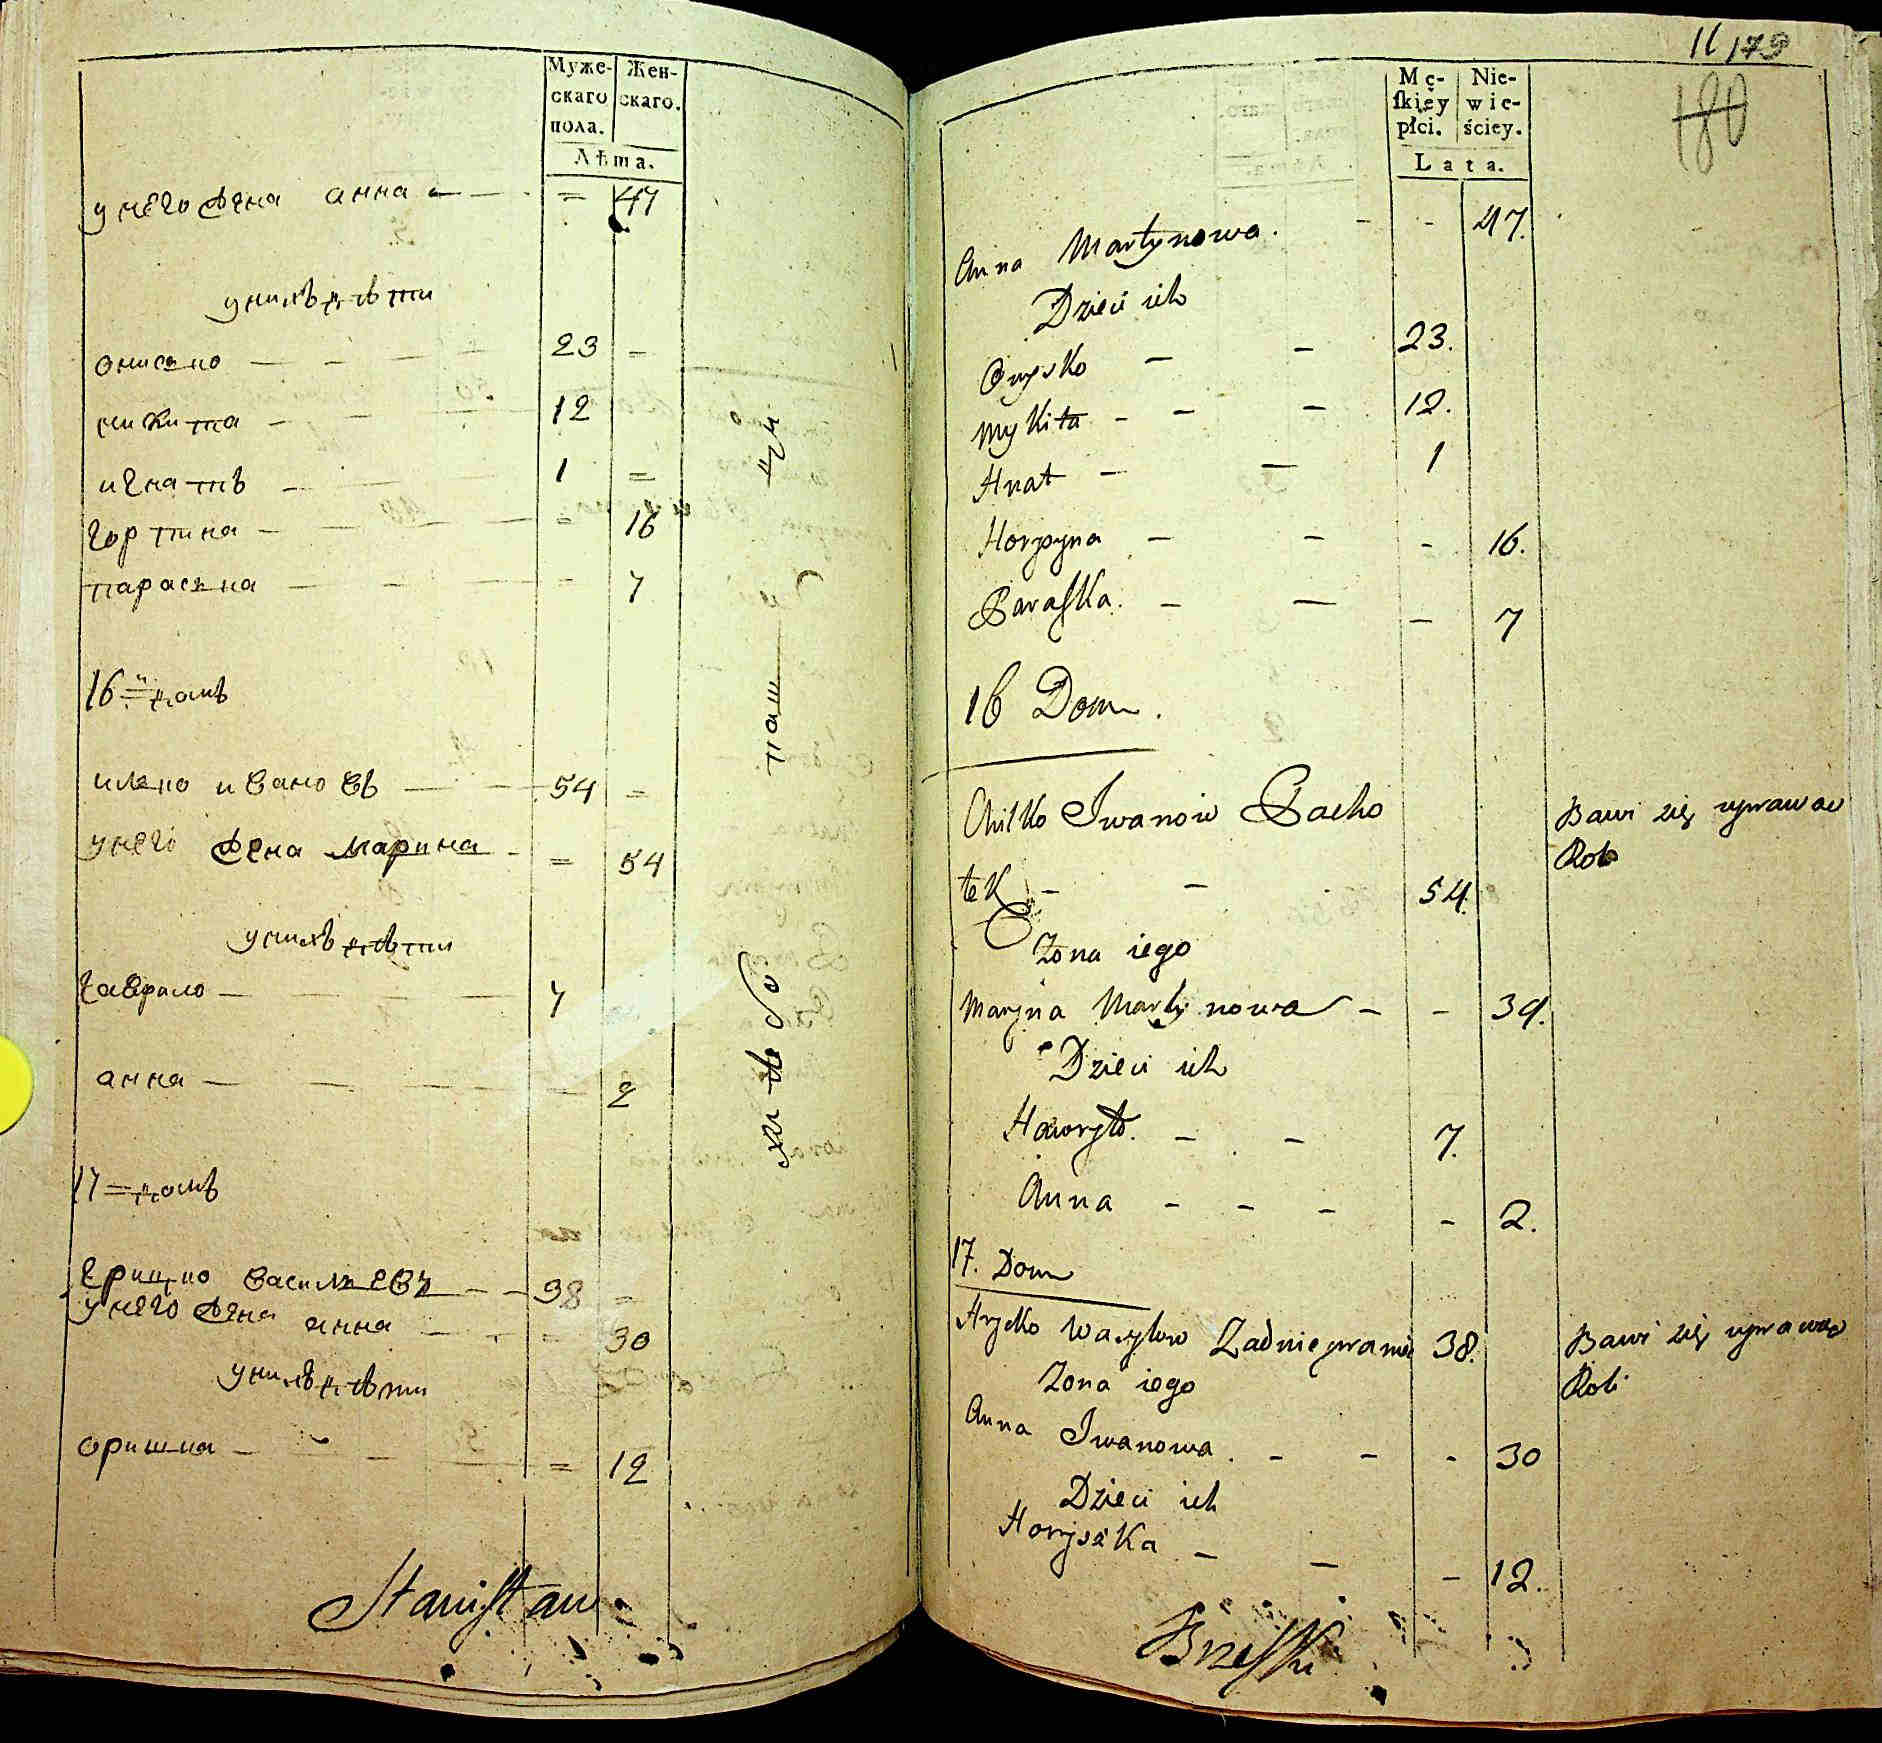 Муже- Жен-
скаго скаго.
пола.
Лѣта.
у него жена анна — = 47
у нихъ дѣти
онисько — 23 =
микита — 12
игнатъ — 1 =
горпина — = 16
параска — = 7
16=й домъ
илько ивановъ — 54 =
у него жена марина — = 54
у нихъ дѣти
гаврило — 7
анна — 2
17=домъ
грицко василъевъ — 38 =
у него жена анна — = 30
у нихъ дѣти
оришка — = 12
Stanisław
11 179
180
Mę- Nie-
skiey wie-
płci. ściey.
Lata.
Anna Martynowa. - - 47.
Dzieci ich
Onysko — — 23.
Mykita - - — 12.
Hnat — — 1
Horpyna — — - 16.
Paraska. — — — 7
16 Dom.
Chilko Iwanow Pacho
tek — — 54.
Bawi się uprawao
Roli
Zona iego
Maryna Martynowa - - 34.
Dzieci ich
Hawryło. - - 7.
Anna - - - - 2.
17. Dom
Hrycko Wasylow Zadnieprani 38.
Bawi się uprawao
Roli
Zona iego
Anna Iwanowa. - - - 30
Dzieci ich
Horyszka — — - 12.
Brzeski